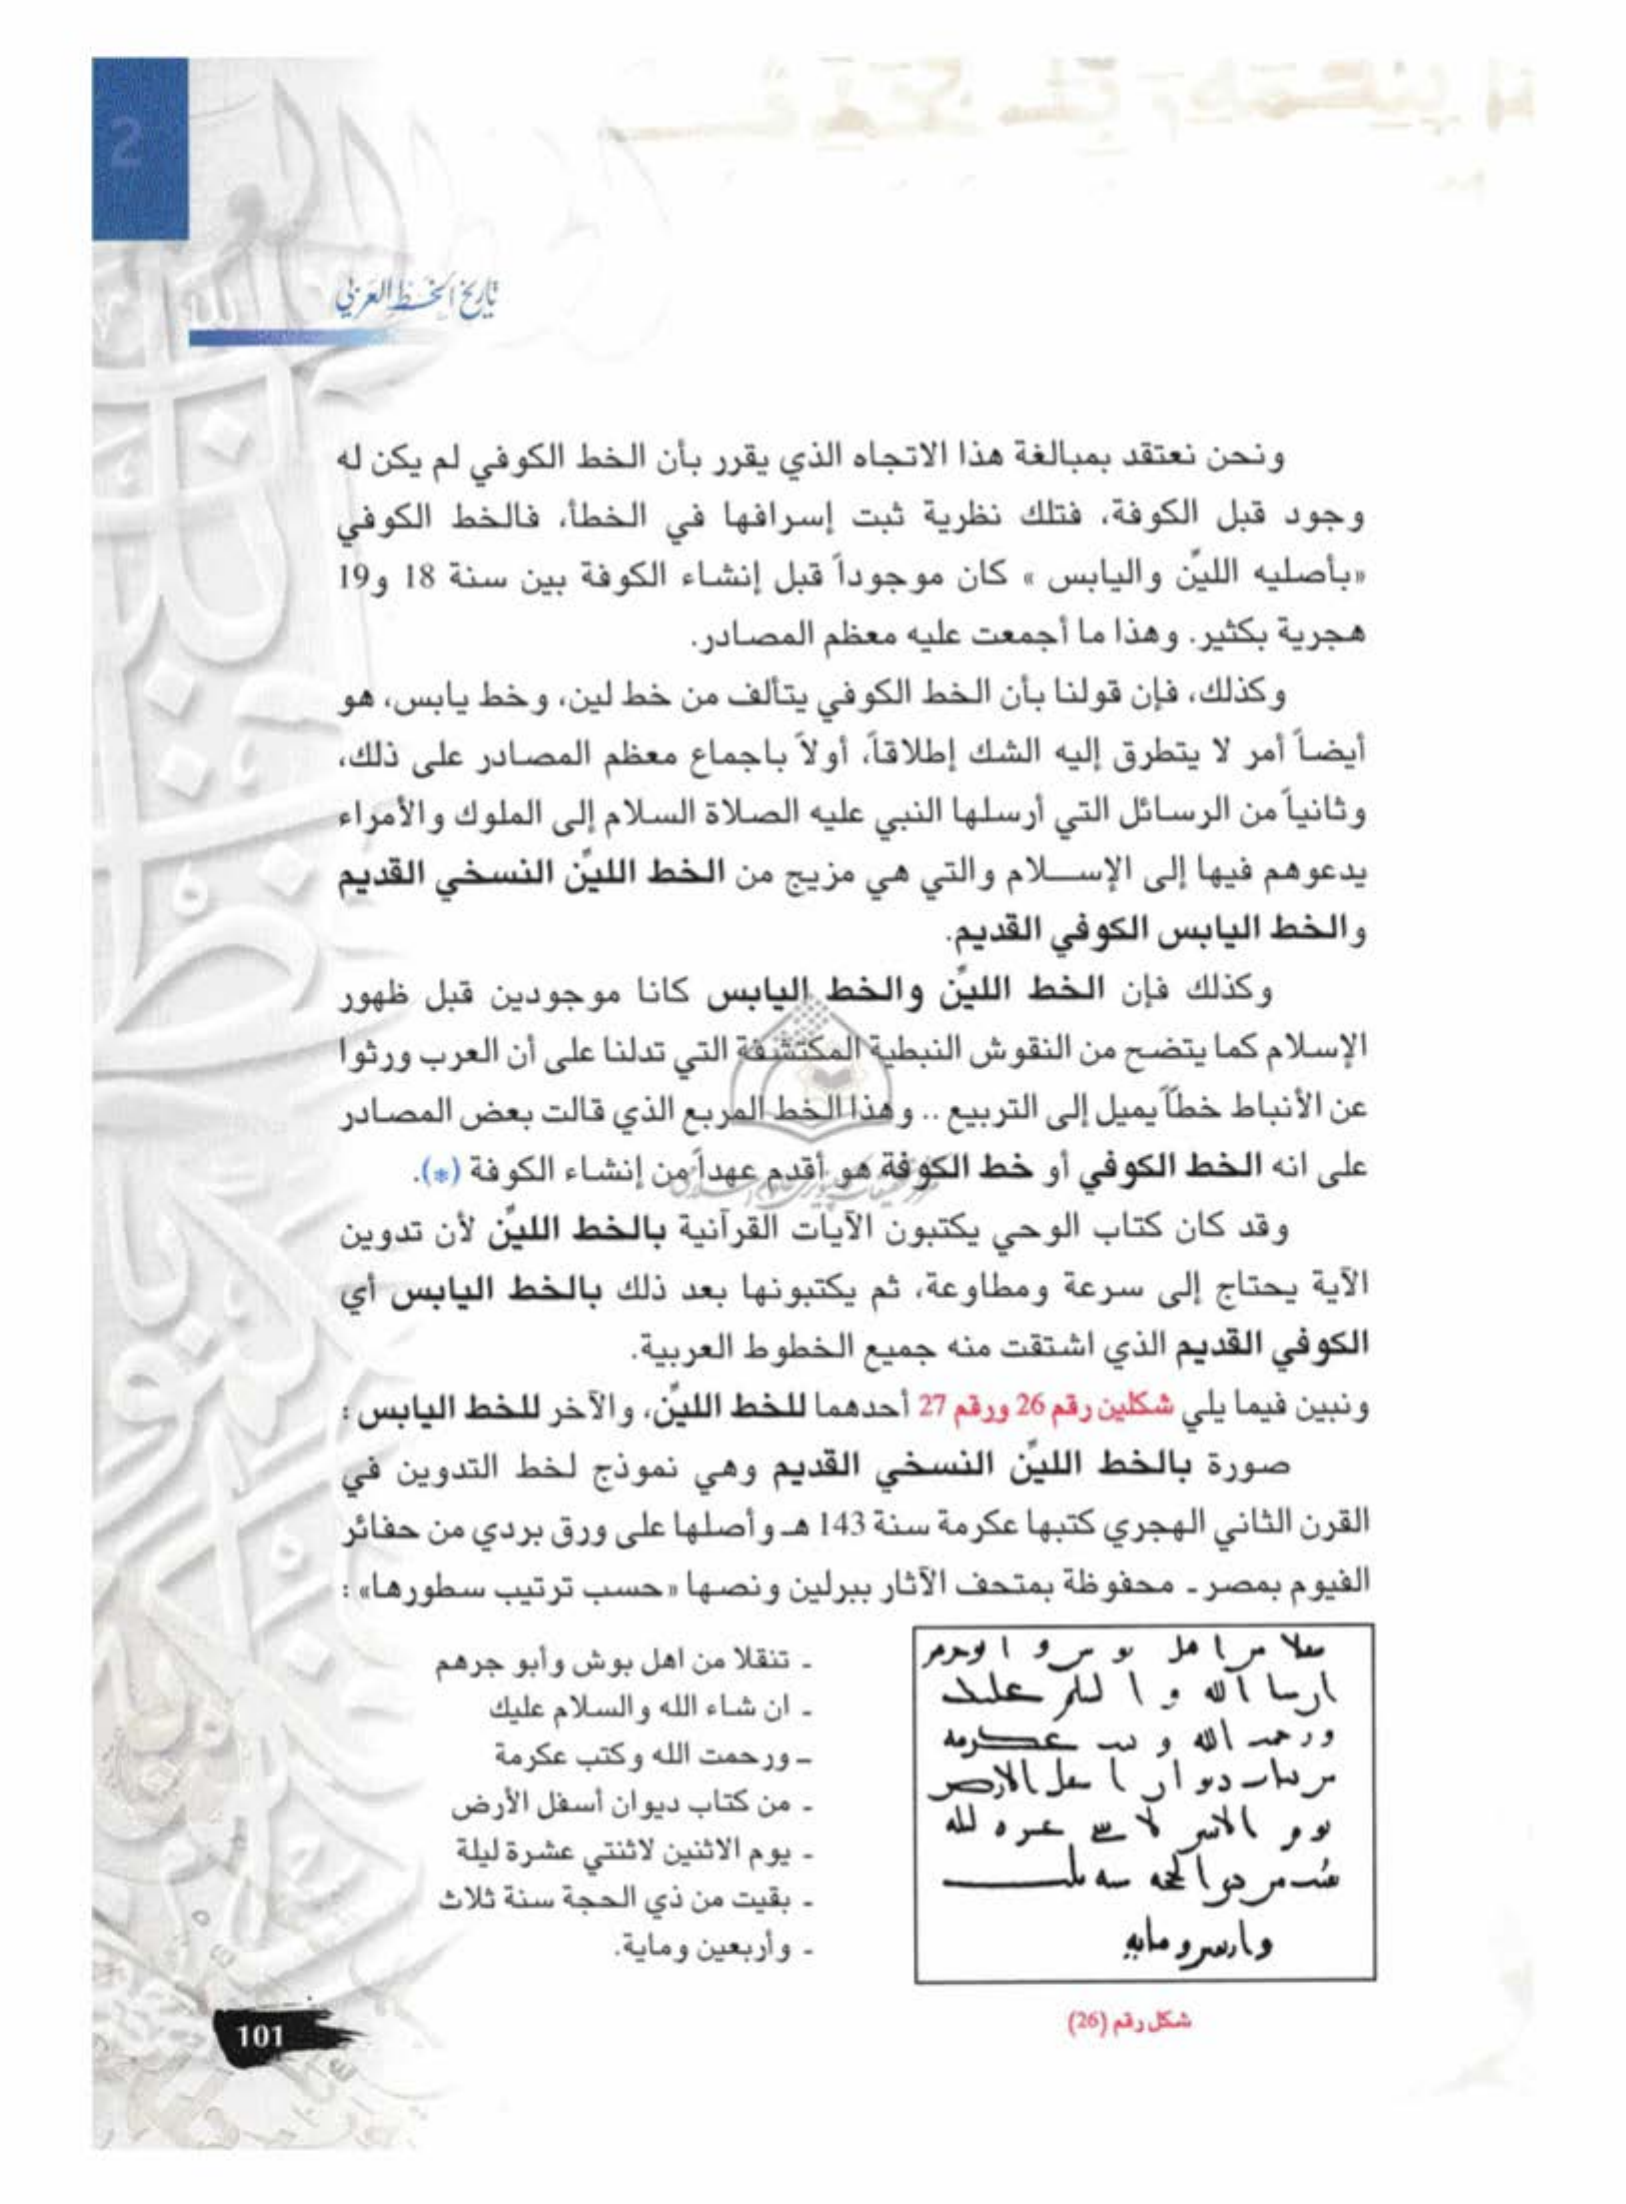 2
تاريخ الخط العربي
ونحن نعتقد بمبالغة هذا الاتجاه الذي يقرر بأن الخط الكوفي لم يكن له
وجود قبل الكوفة، فتلك نظرية ثبت إسرافها في الخطأ، فالخط الكوفي
«بأصليه الليّن واليابس » كان موجوداً قبل إنشاء الكوفة بين سنة 18 و19
هجرية بكثير. وهذا ما أجمعت عليه معظم المصادر.
وكذلك، فإن قولنا بأن الخط الكوفي يتألف من خط لين، وخط يابس، هو
أيضاً أمر لا يتطرق إليه الشك إطلاقاً، أولاً باجماع معظم المصادر على ذلك،
وثانياً من الرسائل التي أرسلها النبي عليه الصلاة السلام إلى الملوك والأمراء
يدعوهم فيها إلى الإســلام والتي هي مزيج من الخط الليّن النسخي القديم
والخط اليابس الكوفي القديم.
وكذلك فإن الخط الليّن والخط اليابس كانا موجودين قبل ظهور
الإسلام كما يتضح من النقوش النبطية المكتشفة التي تدلنا على أن العرب ورثوا
عن الأنباط خطاً يميل إلى التربيع .. وهذا الخط المربع الذي قالت بعض المصادر
على انه الخط الكوفي أو خط الكوفة هو أقدم عهداً من إنشاء الكوفة (*).
وقد كان كتاب الوحي يكتبون الآيات القرآنية بالخط الليّن لأن تدوين
الآية يحتاج إلى سرعة ومطاوعة، ثم يكتبونها بعد ذلك بالخط اليابس أي
الكوفي القديم الذي اشتقت منه جميع الخطوط العربية.
ونبين فيما يلي شكلين رقم 26 ورقم 27 أحدهما للخط الليّن، والآخر للخط اليابس :
صورة بالخط الليّن النسخي القديم وهي نموذج لخط التدوين في
القرن الثاني الهجري كتبها عكرمة سنة 143 هـ وأصلها على ورق بردي من حفائر
الفيوم بمصر ـ محفوظة بمتحف الآثار ببرلين ونصها «حسب ترتيب سطورها» :
ـ تنقلا من اهل بوش وأبو جرهم
ـ ان شاء الله والسلام عليك
ـ ورحمت الله وكتب عكرمة
ـ من كتاب ديوان أسفل الأرض
ـ يوم الاثنين لاثنتي عشرة ليلة
ـ بقيت من ذي الحجة سنة ثلاث
ـ وأربعين وماية.
شكل رقم (26)
101